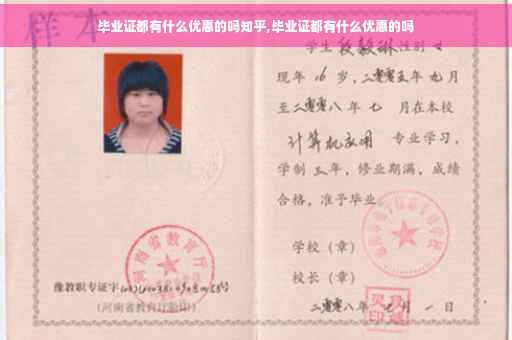 毕业证都有什么优惠的吗知乎,毕业证都有什么优惠的吗
样本
学生 段毅琳 性别 女
现年 16 岁,二零零五年九月
至二零零八年七 月在本校
计算机应用 专业学习,
学制 三年,修业期满,成绩
合格,准予毕业。
学校(章)
河南省教育厅
校长(章)
豫教职专证字
(河南省教育厅验印)
二零零八年 月 一 日